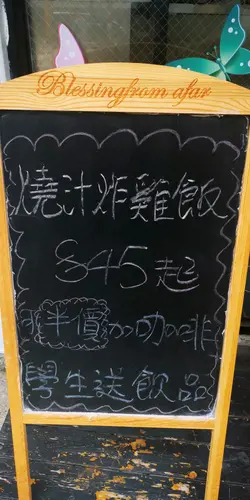 Blessing from afar
燒汁炸雞飯
$45起
半價加咖啡
學生送飲品